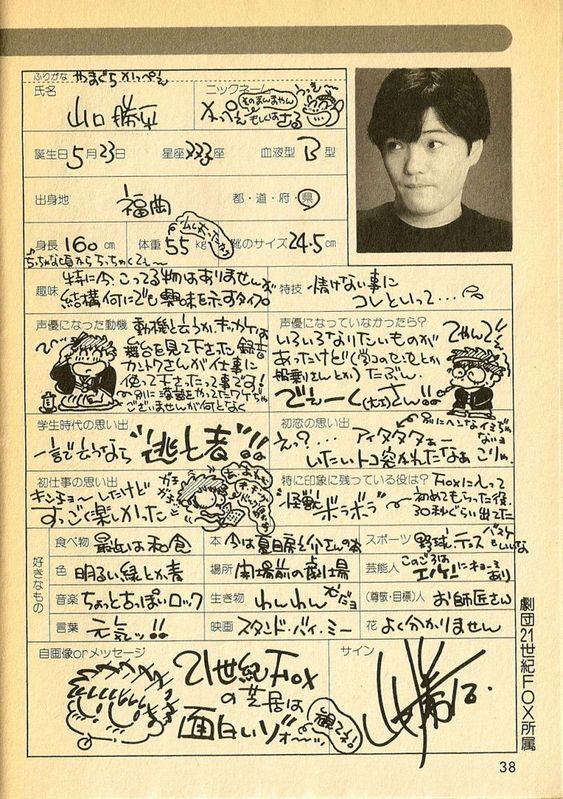 ふりがな やまぐち かっぺえ
氏名 山口勝平
ニックネーム かっぺえ もしくは さる
誕生日 5月23日 星座 ふたご座 血液型 B型
出身地 福岡 都・道・府・県
身長 160cm 体重 55kg 靴のサイズ 24.5cm
ちっちゃな頃から ちっちゃくてェ〜
趣味 特に今、こってる物はありませんが
結構何にでも興味を示すタイプ
特技 情けない事に
コレといって…
声優になった動機 動機と言うか、キッカケは
舞台を見て下さった録音
カントクさんが仕事に
使って下さったって事です!
声優になっていなかったら?
いろいろなりたいものが
あったけど(学校のせんせとか
船乗りさんとか)たぶん
でぇーく(大工)さん!!
てやんでェ
学生時代の思い出
一言で言うなら "逃亡者"!!
初恋の思い出
え?… アイタタタぁー
いたいトコ突かれたなぁ こりゃ
初仕事の思い出
キンチョーしたけど
すっごく楽しかった
特に印象に残っている役は? Foxに入って
初めてもらった役
怪獣 ボラボラ 30秒ぐらい出てた
好きなもの
食べ物 最近は和食
本 今は夏目房之介さんの本
スポーツ 野球・テニス バスケもいいな
色 明るい緑とか青
場所 開場前の劇場
芸能人 このごろは エノケンにキョーミあり
音楽 ちょっとあっぽいロック
生き物 わんわん だよ
(尊敬・目標)人 お師匠さん
言葉 元気ッ!!
映画 スタンド・バイ・ミー
花 よく分かりません
自画像orメッセージ
21世紀Fox
の芝居は
面白いゾォー
観てネ!
サイン
劇団21世紀FOX所属
38